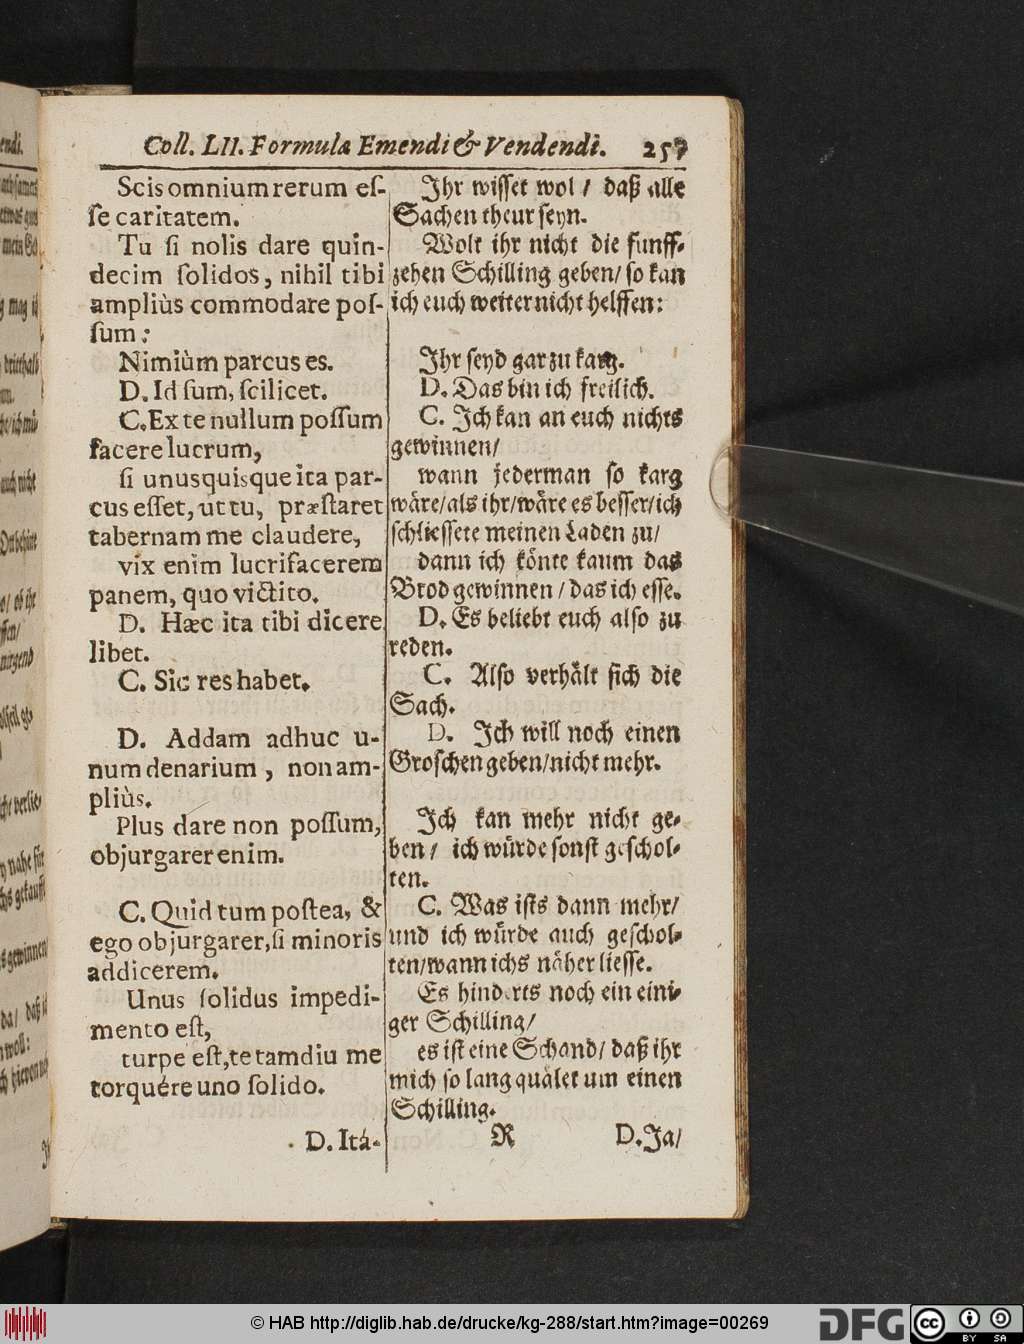 Coll. LII. Formulæ Emendi & Vendendi. 257
Scis omnium rerum eſ-
ſe caritatem.
Tu ſi nolis dare quin-
decim ſolidos, nihil tibi
ampliùs commodare poſ-
ſum:
Nimiùm parcus es.
D. Id ſum, ſcilicet.
C. Ex te nullum poſſum
facere lucrum,
ſi unusquisque ita par-
cus eſſet, ut tu, præſtaret
tabernam me claudere,
vix enim lucrifacerem
panem, quo victito.
D. Hæc ita tibi dicere
libet.
C. Sic res habet.
D. Addam adhuc u-
num denarium, non am-
pliùs.
Plus dare non poſſum,
objurgarer enim.
C. Quid tum poſtea, &
ego objurgarer, ſi minoris
addicerem.
Unus ſolidus impedi-
mento eſt,
turpe eſt, te tamdiu me
torquére uno ſolido.
D. Itá-
Ihr wiſſet wol / daß alle
Sachen theur ſeyn.
Wolt ihr nicht die funff-
zehen Schilling geben / ſo kan
ich euch weiter nicht helffen:
Ihr ſeyd gar zu karg.
D. Das bin ich freilich.
C. Ich kan an euch nichts
gewinnen /
wann jederman ſo karg
wäre / als ihr / wäre es beſſer / ich
ſchlieſſete meinen Laden zu /
dann ich könte kaum das
Brod gewinnen / das ich eſſe.
D. Es beliebt euch alſo zu
reden.
C. Alſo verhält ſich die
Sach.
D. Ich will noch einen
Groſchen geben / nicht mehr.
Ich kan mehr nicht ge-
ben / ich würde ſonſt geſchol-
ten.
C. Was iſts dann mehr /
und ich würde auch geſchol-
ten / wann ichs näher lieſſe.
Es hinderts noch ein eini-
ger Schilling /
es iſt eine Schand / daß ihr
mich ſo lang quälet um einen
Schilling.
R D. Ja /
© HAB http://diglib.hab.de/drucke/kg-288/start.htm?image=00269
DFG
cc BY SA